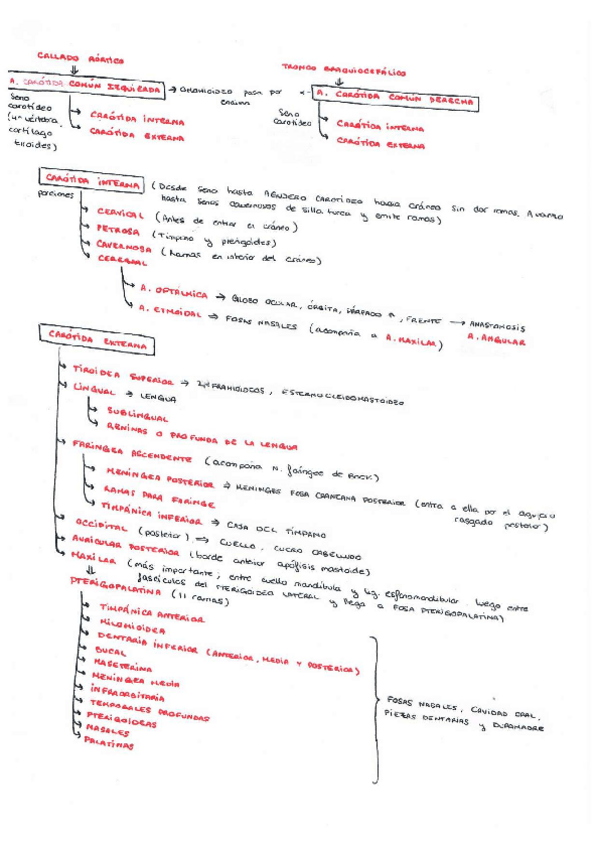 CALLADO AÓRTICO
TRONCO BRAQUIOCEFÁLICO
A. CARÓTIDA COMÚN IZQUIERDA → OMOHIOIDEO pasa por encima ← A. CARÓTIDA COMÚN DERECHA
Seno carotídeo (4ª vértebra, cartílago tiroides)
CARÓTIDA INTERNA
CARÓTIDA EXTERNA
Seno carotídeo
CARÓTIDA INTERNA
CARÓTIDA EXTERNA
CARÓTIDA INTERNA (Desde seno hasta AGUJERO CAROTÍDEO hacia cráneo sin dar ramas. Avanza
hasta senos cavernosos de silla turca y emite ramas)
porciones
CERVICAL (Antes de entrar el cráneo)
PETROSA (Tímpano y pterigoides)
CAVERNOSA (Ramas en interior del cráneo)
CEREBRAL
A. OFTÁLMICA → GLOBO OCULAR, ÓRBITA, PÁRPADO, FRENTE → ANASTOMOSIS
A. ANGULAR
A. ETMOIDAL → FOSAS NASALES (acompaña a A. MAXILAR)
CARÓTIDA EXTERNA
TIROIDEA SUPERIOR → INFRAHIOIDEOS, ESTERNOCLEIDOMASTOIDEO
LINGUAL → LENGUA
SUBLINGUAL
RANINAS O PROFUNDA DE LA LENGUA
FARÍNGEA ASCENDENTE (acompaña N. faíngeo de
MENÍNGEA POSTERIOR → MENINGES FOSA CRANEANA POSTERIOR (entra a ella por el agujero
rasgado posterior)
RAMAS PARA FARINGE
TIMPÁNICA INFERIOR → CAJA DEL TÍMPANO
OCCIPITAL (posterior) → CUELLO, CUERO CABELLUDO
AURICULAR POSTERIOR (borde anterior apófisis mastoide)
MAXILAR (más importante, entre cuello mandíbula y lig. esfenomandibular. Luego entre
fascículos del PTERIGOIDEO LATERAL y llega a FOSA PTERIGOPALATINA)
PTERIGOPALATINA (11 ramas)
TIMPÁNICA ANTERIOR
MILOHIOIDEA
DENTARIA INFERIOR (ANTERIOR, MEDIA Y POSTERIOR)
BUCAL
MASETERINA
MENÍNGEA MEDIA
INFRAORBITARIA
TEMPORALES PROFUNDAS
PTERIGOIDEAS
NASALES
PALATINAS
FOSAS NASALES, CAVIDAD ORAL,
PIEZAS DENTARIAS y DURAMADRE